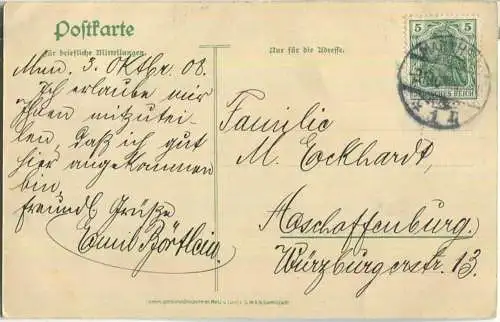 Postkarte
Für briefliche Mitteilungen.
Nur für die Adresse.
5 5
Mm. 3. Oktbr. 08.
Ich erlaube mir
Ihnen mitzutei-
len, daß ich gut
hier angekommen
bin,
freundl Grüße
Emil Börtlein.
Familie
M. Eckhardt,
Aschaffenburg.
Würzburgerstr. 13.